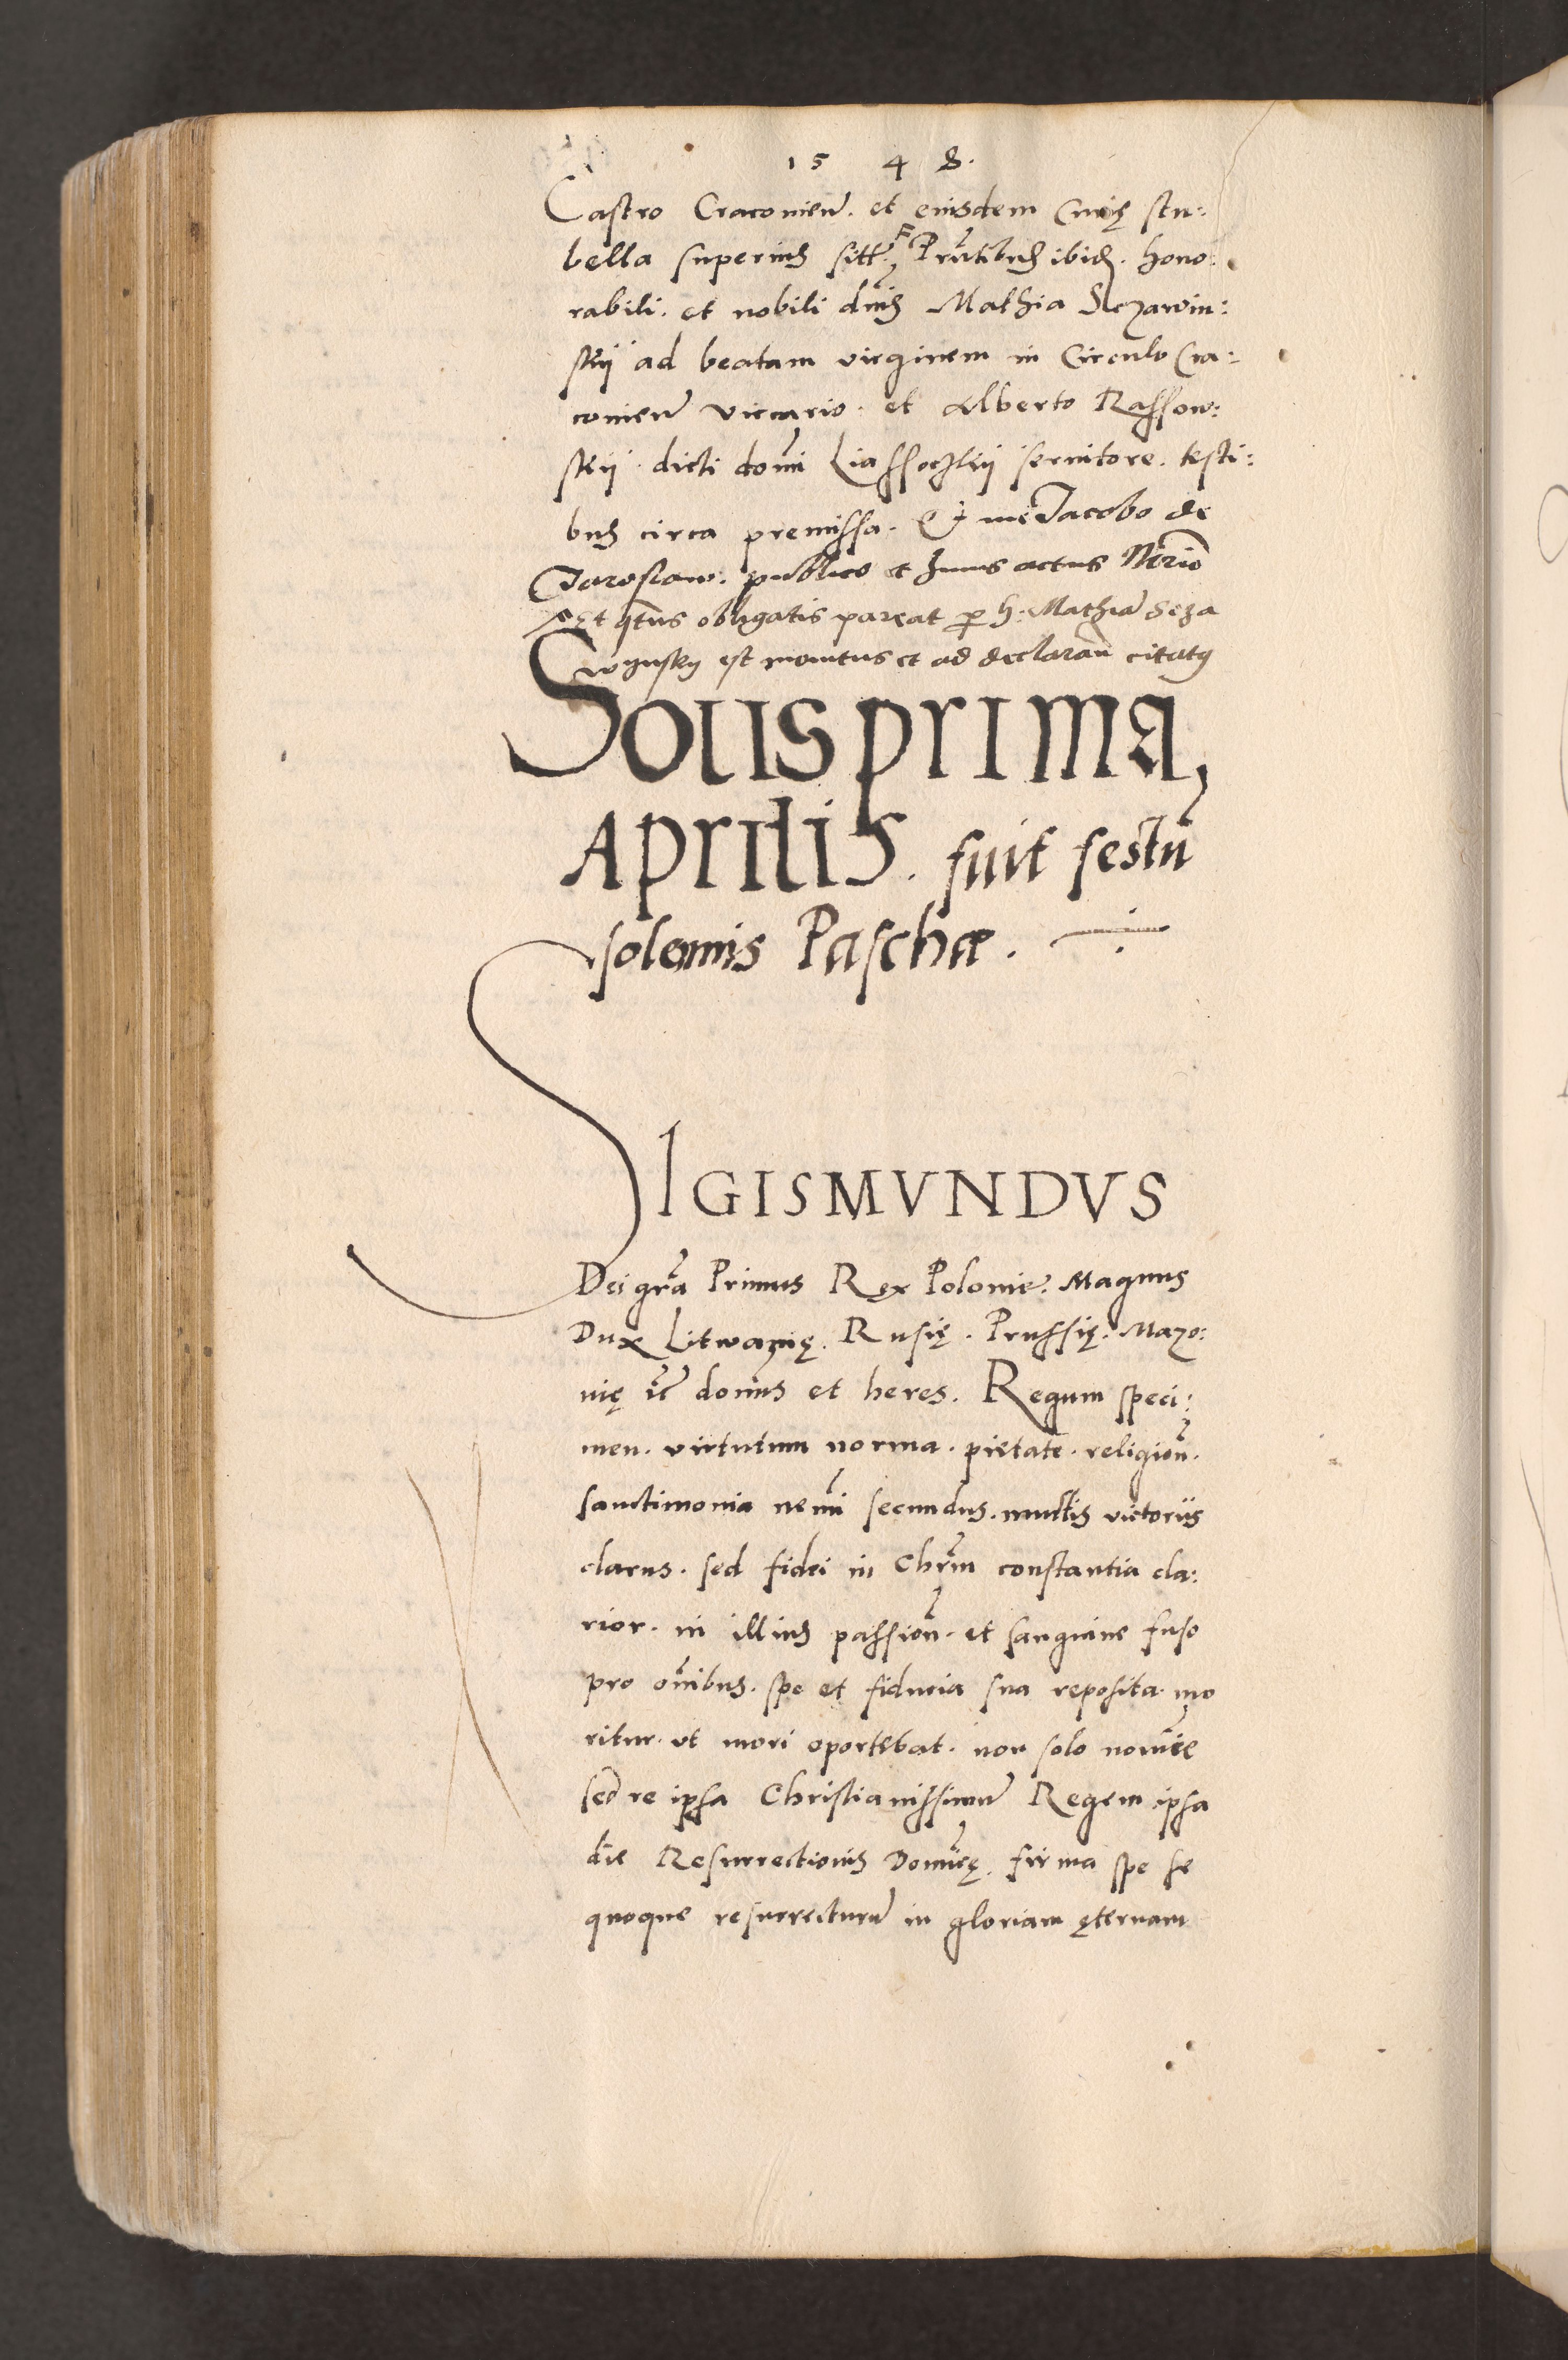 1548.
Castro Cracovien̄. et eiusdem Curię stu:
bella superius sitt. Pñtibus ibid. hono:
rabili. et nobili dnis Mathia Sczawin:
skij ad beatam virginem in Circulo Cra:
covien̄ vicario. et Alberto Rassow:
skij. dicti domi servitore. testi:
bus circa premissa. Et me Jacobo de
Jaroslaw. publico et huius actus Nrio
Et obligatis pareat p h. Mathia Scza
wynsky est monitus et ad declaran̄ citatus
Solis prima
Aprilis. fuit festū
solemnis Paschæ.
SIGISMVNDVS
Dei gr̃a Primus Rex Polonie. Magnus
Dux Litwanię. Rusię. Prussię. Mazo:
vię etc̃ domĩns et heres. Regum speci:
men. virtutum norma. pietate. religion̄.
sanctimonia nemĩ secundus. multis victoriis
clarus. sed fidei in Chr̃m constantia cla:
rior. in illius passion̄. et sanguine fuso
pro om̃ibus. spe et fiducia sua reposita. mo
ritur. ut mori oportebat. non solo nomĩe
sed re ipsa Christianissimū Regem ipsa
die Resurrectionis Domĩcę. firma spe se
quoque resurrecturū in gloriam ęternam